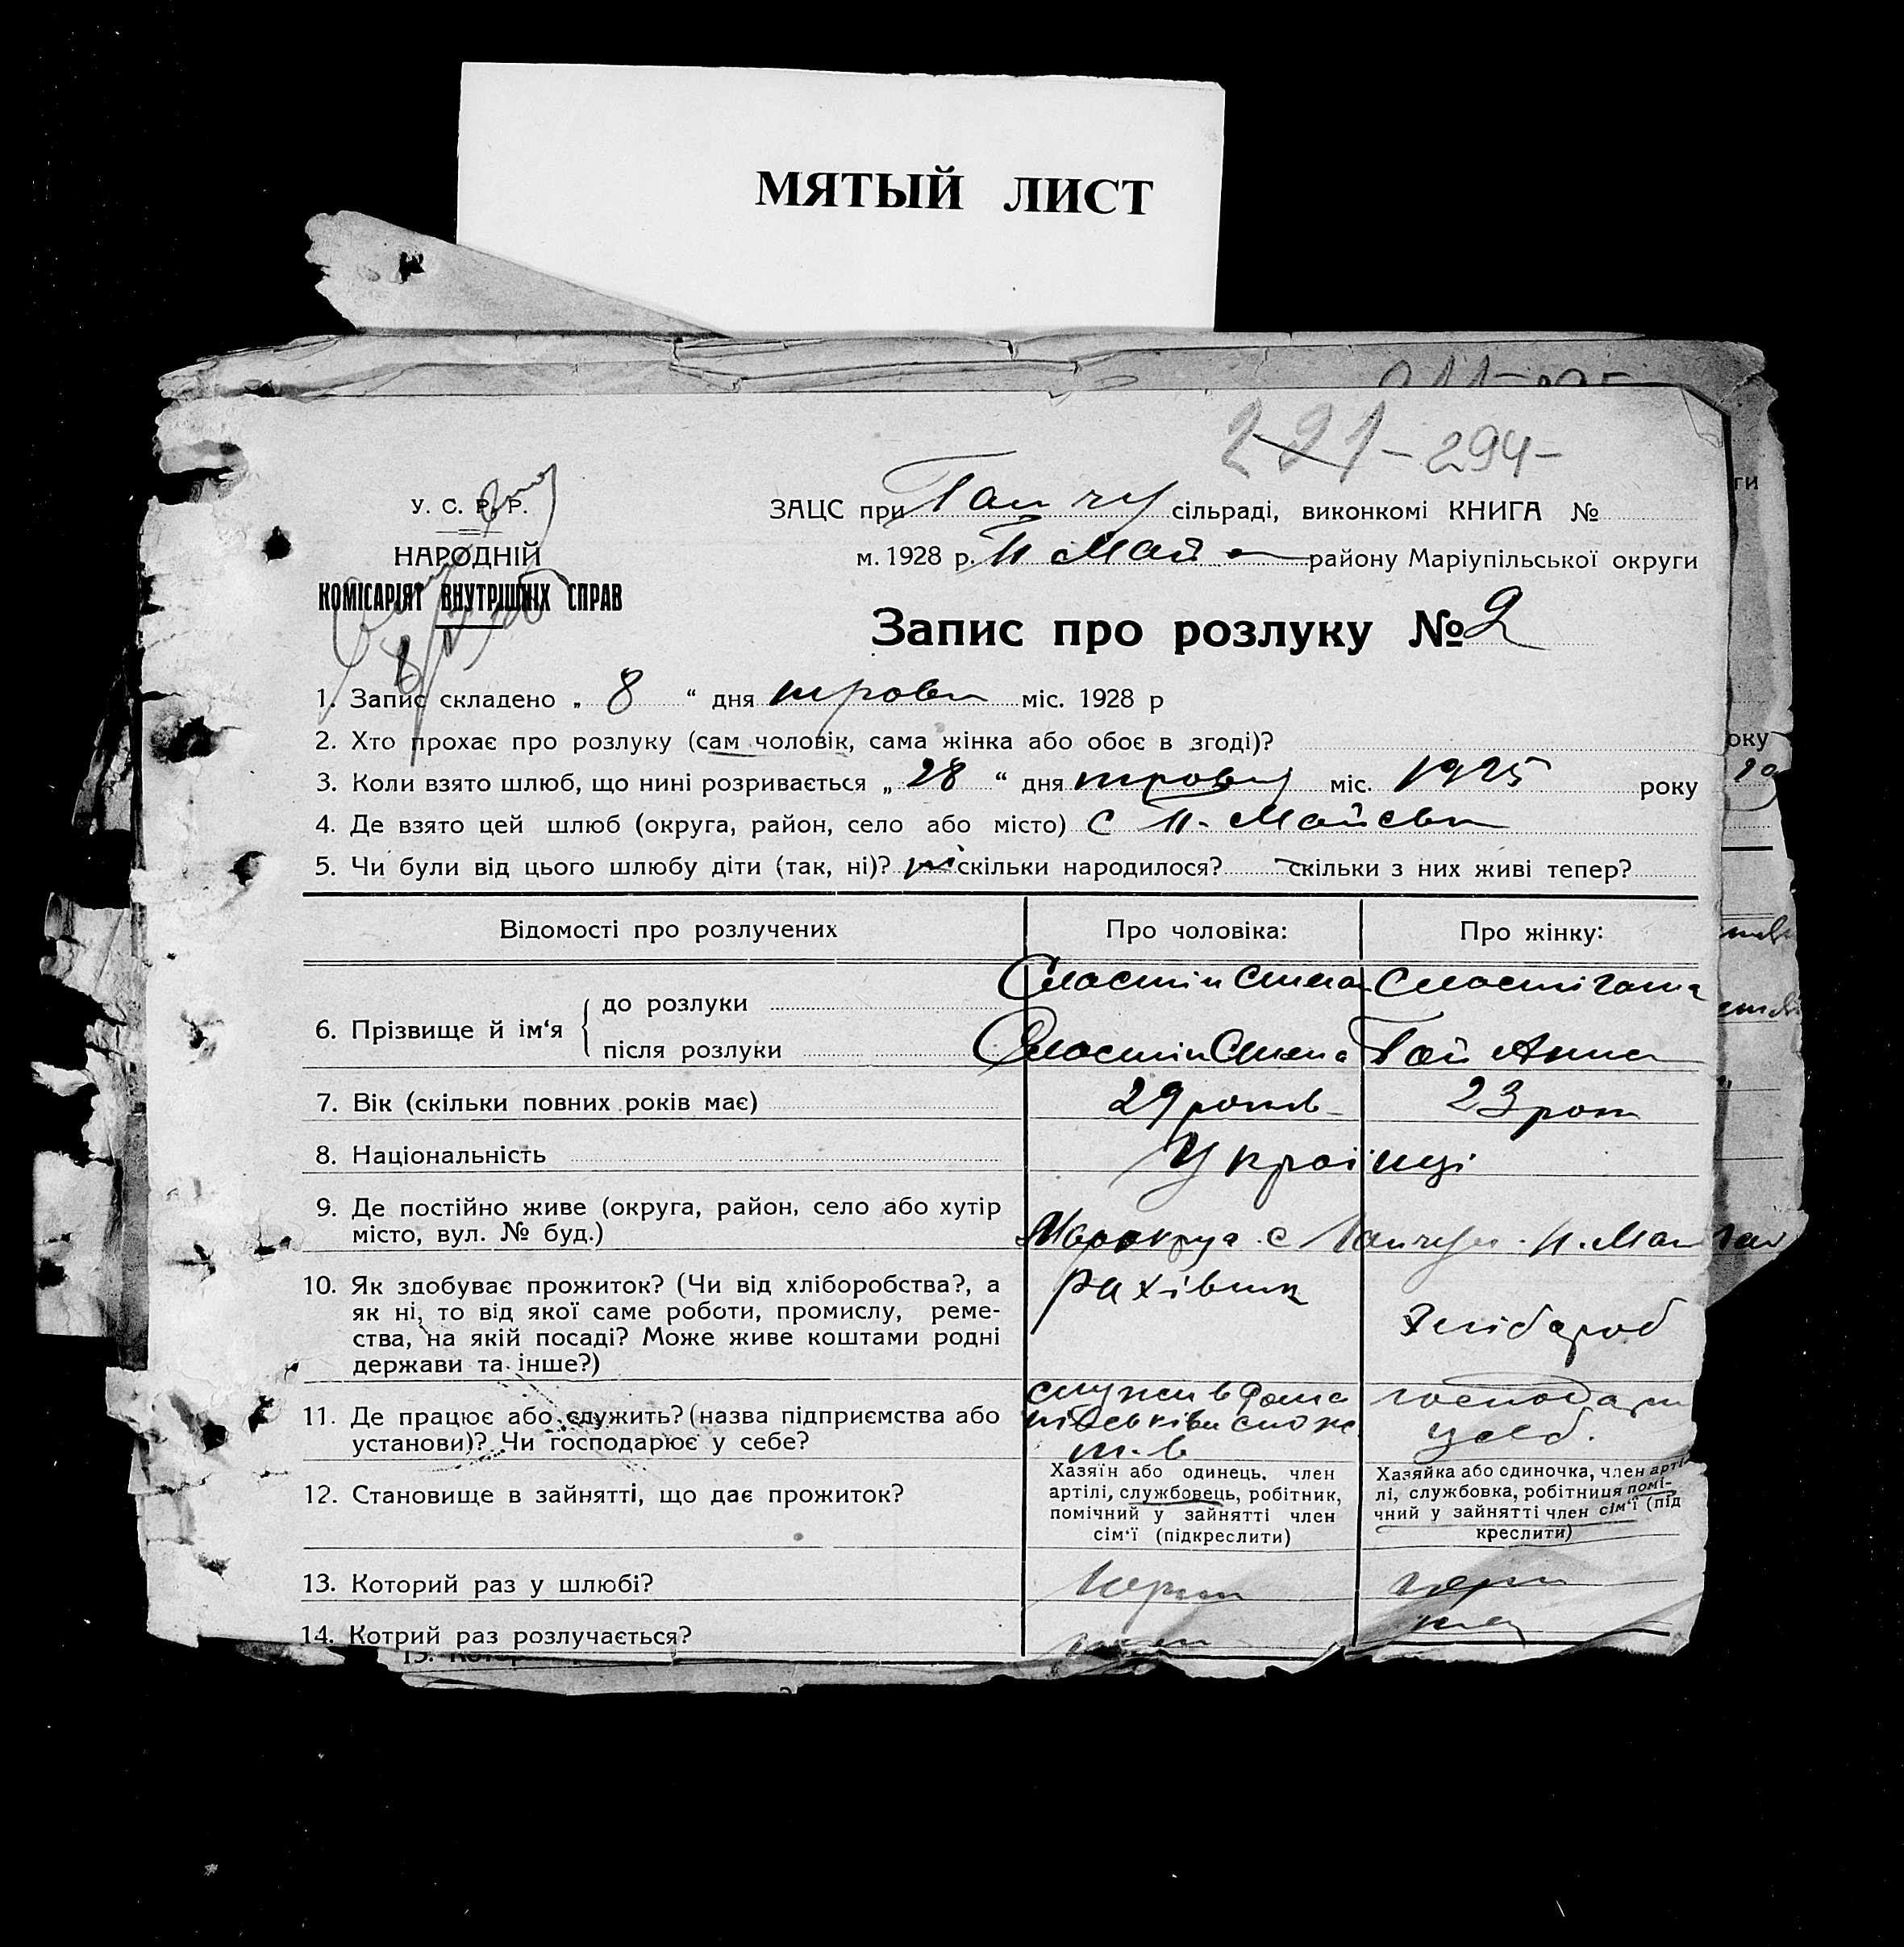 МЯТЫЙ ЛИСТ
221-294-
У. С. Р. Р.
НАРОДНІЙ
КОМІСАРІЯТ ВНУТРІШНІХ СПРАВ
ЗАЦС при Ганчу сільраді, виконкомі КНИГА №
м. 1928 р. П Май района Маріупільської округи
Запис про розлуку № 2
1. Запис складено „ 8 “ дня травн міс. 1928 р
2. Хто прохає про розлуку (сам чоловік, сама жінка або обоє в згоді)?
3. Коли взято шлюб, що нині розривається „ 28 “ дня травня міс. 1925 року
4. Де взято цей шлюб (округа, район, село або місто) с П-Майськ
5. Чи були від цього шлюбу діти (так, ні)? ні скільки народилося? скільки з них живі тепер?
Відомості про розлучених Про чоловіка: Про жінку:
6. Прізвище й ім‘я
до розлуки Сластін Сластін ганна
після розлуки Сластін Гай Анна
7. Вік (скільки повних років має) 29 років 23 рок
8. Національність Українці
9. Де постійно живе (округа, район, село або хутір
місто, вул. № буд.) Марокруга с П. Май
10. Як здобуває прожиток? (Чи від хліборобства?, а рахівник
як ні, то від якої саме роботи, промислу, реме- хлібороб
ства, на якій посаді? Може живе коштами родні
держави та інше?)
11. Де працює або служить? (назва підприємства або служи в господари
установи)? Чи господарює у себе? спож у себ.
т-в
12. Становище в зайнятті, що дає прожиток?
Хазяїн або одинець, член
артілі, службовець, робітник,
помічний у зайнятті член
сім‘ї (підкреслити)
Хазяйка або одиночка, член арті-
лі, службовка, робітниця помі-
чний у зайнятті член сім‘ї (під
креслити)
13. Которий раз у шлюбі? перш перш
14. Котрий раз розлучається?